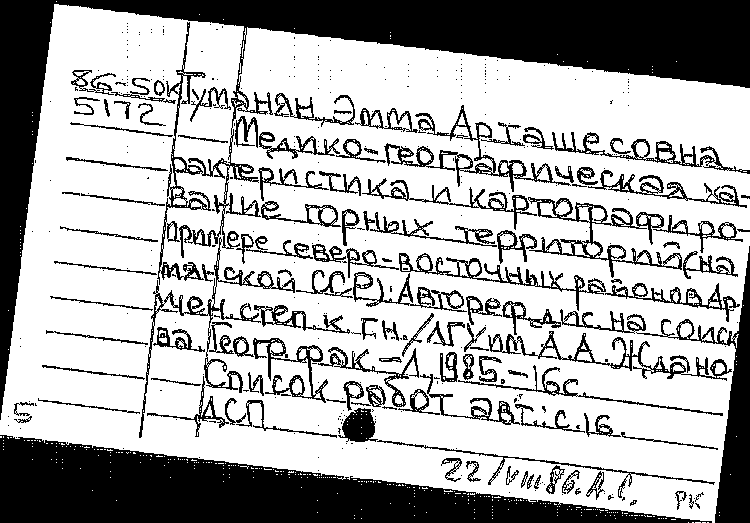 86-50к Туманян, Эмма Арташесовна
5172
Медико-географическая ха-
рактеристика и картографиро-
вание горных территорий (на
примере северо-восточных районов Ар
мянской ССР): Автореф. дис. на соиск
учен. степ. к. г.н. / ЛГУ им. А.А. Ждано
ва. Геогр. фак. - Л., 1985. - 16 с.
Список работ авт.: с. 16.
ДСП.
5
22/VIII 86. А.С. РК